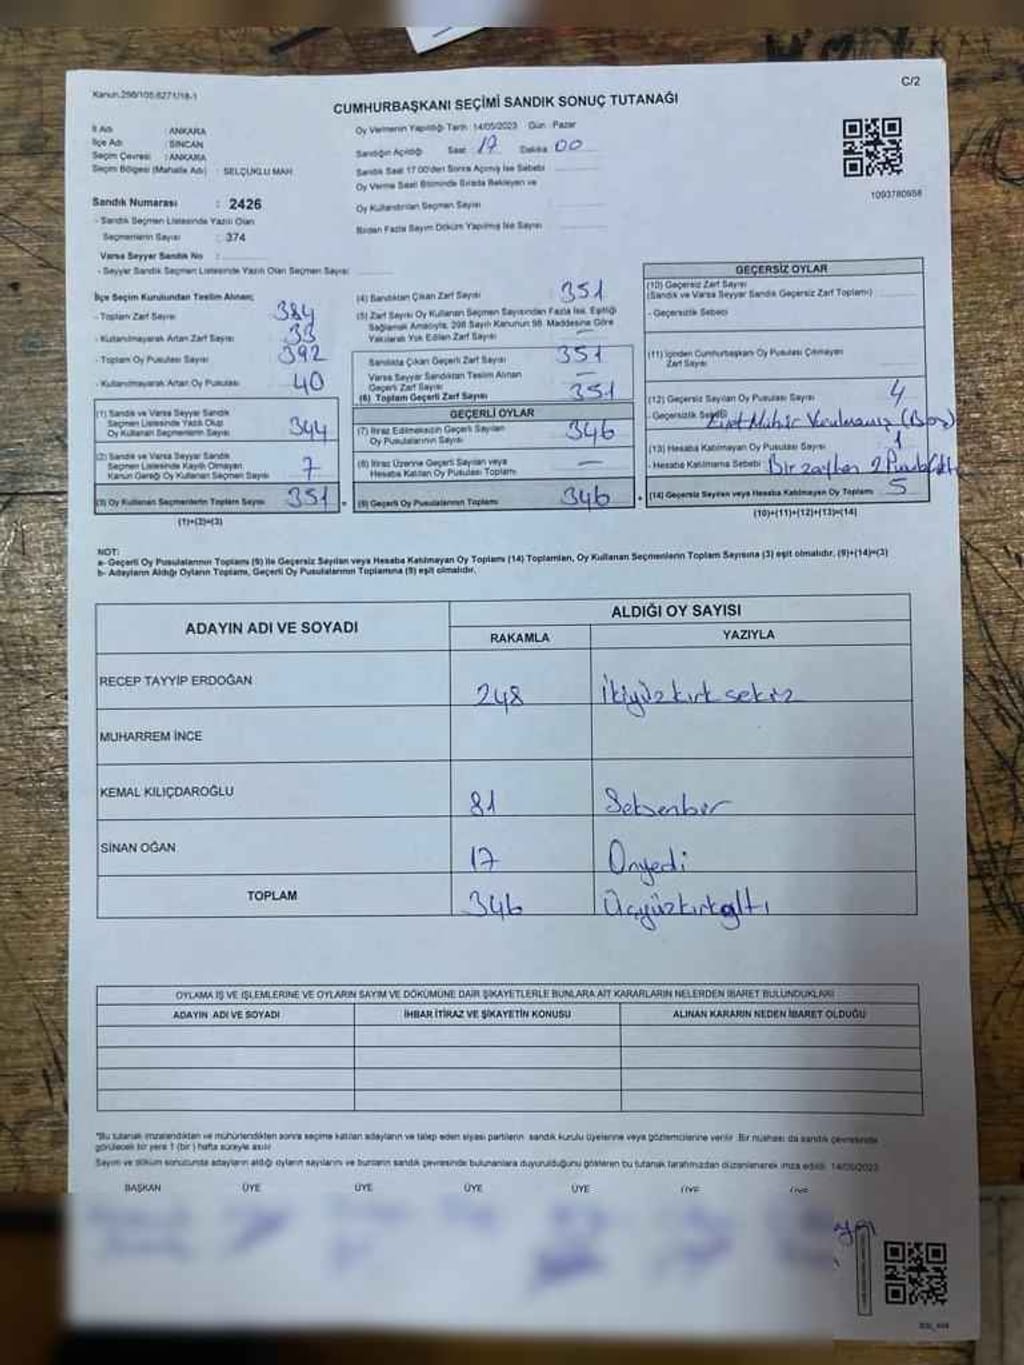 Kanun.298/105.6271/18-1
C/2
CUMHURBAŞKANI SEÇİMİ SANDIK SONUÇ TUTANAĞI
İl Adı : ANKARA
İlçe Adı : SİNCAN
Seçim Çevresi : ANKARA
Seçim Bölgesi (Mahalle Adı) : SELÇUKLU MAH
Sandık Numarası : 2426
- Sandık Seçmen Listesinde Yazılı Olan
Seçmenlerin Sayısı : 374
Varsa Seyyar Sandık No :
- Seyyar Sandık Seçmen Listesinde Yazılı Olan Seçmen Sayısı:
Oy Vermenin Yapıldığı Tarih :14/05/2023 Gün : Pazar
Sandığın Açıldığı Saat : 17 Dakika : 00
Sandık Saat 17.00'den Sonra Açılmış İse Sebebi
Oy Verme Saati Bitiminde Sırada Bekleyen ve
Oy Kullandırılan Seçmen Sayısı
Birden Fazla Sayım Döküm Yapılmış İse Sayısı
1093780958
İlçe Seçim Kurulundan Teslim Alınan;
- Toplam Zarf Sayısı : 384
- Kullanılmayarak Artan Zarf Sayısı : 33
- Toplam Oy Pusulası Sayısı : 392
- Kullanılmayarak Artan Oy Pusulası : 40
(1) Sandık ve Varsa Seyyar Sandık
Seçmen Listesinde Yazılı Olup
Oy Kullanan Seçmenlerin Sayısı 344
(2) Sandık ve Varsa Seyyar Sandık
Seçmen Listesinde Kayıtlı Olmayan
Kanun Gereği Oy Kullanan Seçmen Sayısı 7
(3) Oy Kullanan Seçmenlerin Toplam Sayısı 351
(1)+(2)=(3)
(4) Sandıktan Çıkan Zarf Sayısı 351
(5) Zarf Sayısı Oy Kullanan Seçmen Sayısından Fazla İse, Eşitliği
Sağlamak Amacıyla, 298 Sayılı Kanunun 98. Maddesine Göre
Yakılarak Yok Edilen Zarf Sayısı —
Sandıkta Çıkan Geçerli Zarf Sayısı 351
Varsa Seyyar Sandıktan Teslim Alınan
Geçerli Zarf Sayısı —
(6) Toplam Geçerli Zarf Sayısı 351
GEÇERLİ OYLAR
(7) İtiraz Edilmeksizin Geçerli Sayılan
Oy Pusulalarının Sayısı 346
(8) İtiraz Üzerine Geçerli Sayılan veya
Hesaba Katılan Oy Pusulası Toplamı —
(9) Geçerli Oy Pusulalarının Toplamı 346
GEÇERSİZ OYLAR
(10) Geçersiz Zarf Sayısı
(Sandık ve Varsa Seyyar Sandık Geçersiz Zarf Toplamı)
- Geçersizlik Sebebi
(11) İçinden Cumhurbaşkanı Oy Pusulası Çıkmayan
Zarf Sayısı
(12) Geçersiz Sayılan Oy Pusulası Sayısı 4
- Geçersizlik Sebebi Mühür Vurulmamış (Boş)
(13) Hesaba Katılmayan Oy Pusulası Sayısı 1
- Hesaba Katılmama Sebebi Bir zarftan 2 Pusula
(14) Geçersiz Sayılan veya Hesaba Katılmayan Oy Toplamı 5
(10)+(11)+(12)+(13)=(14)
NOT:
a- Geçerli Oy Pusulalarının Toplamı (9) ile Geçersiz Sayılan veya Hesaba Katılmayan Oy Toplamı (14) Toplamları, Oy Kullanan Seçmenlerin Toplam Sayısına (3) eşit olmalıdır. (9)+(14)=(3)
b- Adayların Aldığı Oyların Toplamı, Geçerli Oy Pusulalarının Toplamına (9) eşit olmalıdır.
ADAYIN ADI VE SOYADI
ALDIĞI OY SAYISI
RAKAMLA YAZIYLA
RECEP TAYYİP ERDOĞAN 248 İkiyüzkırk sekiz
MUHARREM İNCE
KEMAL KILIÇDAROĞLU 81 Seksenbir
SİNAN OĞAN 17 Onyedi
TOPLAM 346 Üçyüzkırkaltı
OYLAMA İŞ VE İŞLEMLERİNE VE OYLARIN SAYIM VE DÖKÜMÜNE DAİR ŞİKAYETLERLE BUNLARA AİT KARARLARIN NELERDEN İBARET BULUNDUKLARI
ADAYIN ADI VE SOYADI İHBAR İTİRAZ VE ŞİKAYETİN KONUSU ALINAN KARARIN NEDEN İBARET OLDUĞU
"Bu tutanak imzalandıktan ve mühürlendikten sonra seçime katılan adayların ve talep eden siyasi partilerin sandık kurulu üyelerine veya gözlemcilerine verilir. Bir nüshası da sandık çevresinde
görülecek bir yere 1 (bir) hafta süreyle asılır
Sayım ve döküm sonucunda adayların aldığı oyların sayılarını ve bunların sandık çevresinde bulunanlara duyurulduğunu gösteren bu tutanak tarafımızdan düzenlenerek imza edildi. 14/05/2023
BAŞKAN ÜYE ÜYE ÜYE ÜYE ÜYE ÜYE